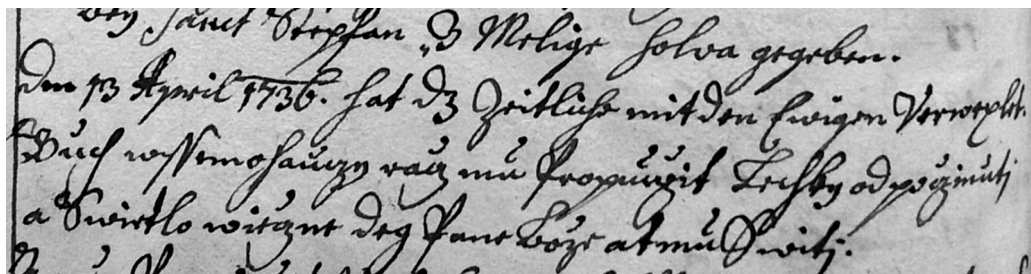 bey Sanct Stephan d3 Melige Holva gegeben.
Den 13 April 1736. hat d3 Zeitliche mit den Ewigen Verwexlet.
Buch wssemohauczy racz mu Propuczit Techky odpoczinuti
a Swietlo wieczne deg Pane Boze at mu Switi.